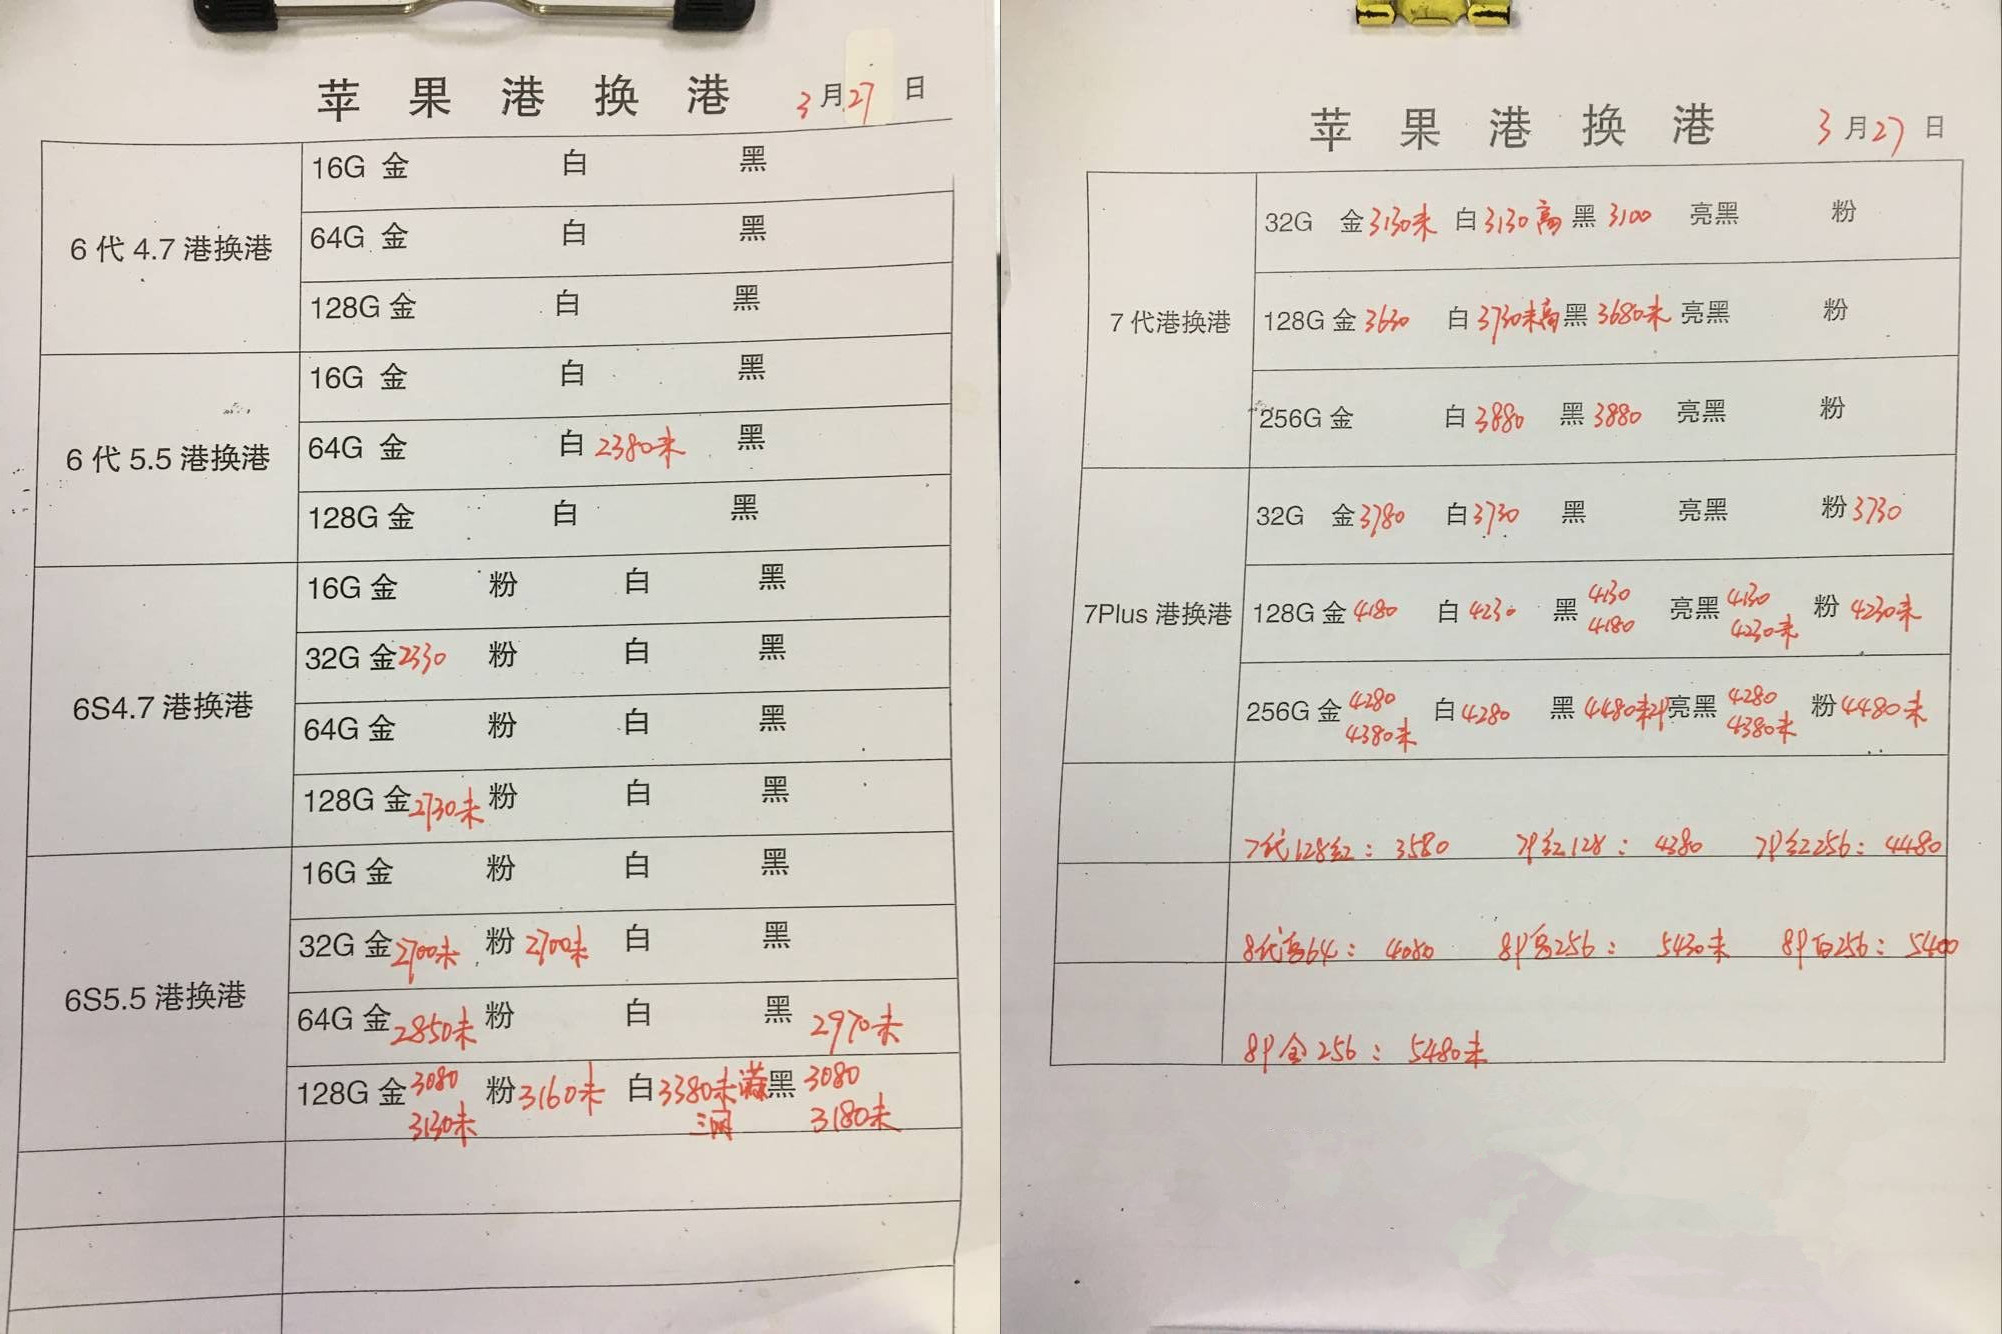 苹果港换港 3月27日
6代4.7港换港
16G 金 白 黑
64G 金 白 黑
128G 金 白 黑
6代5.5港换港
16G 金 白 黑
64G 金 白 2380未 黑
128G 金 白 黑
6S4.7港换港
16G 金 粉 白 黑
32G 金 2330 粉 白 黑
64G 金 粉 白 黑
128G 金 2730未 粉 白 黑
6S5.5港换港
16G 金 粉 白 黑
32G 金 2700未 粉 2700未 白 黑
64G 金 2850未 粉 白 黑 2970未
128G 金 3080 粉 3160未 白 3380未 黑 3080
3130未 三网 3180未
苹果港换港 3月27日
7代港换港
32G 金 3130未 白 3130高 黑 3100 亮黑 粉
128G 金 3630 白 3730未高 黑 3680未 亮黑 粉
256G 金 白 3880 黑 3880 亮黑 粉
7Plus港换港
32G 金 3780 白 3730 黑 亮黑 粉 3730
128G 金 4180 白 4230 黑 4130 亮黑 4130 粉 4230未
4180 4230未
256G 金 4280 白 4280 黑 4480未 亮黑 4280 粉 4480未
4380未 4380未
7代128红：3580 7P红128：4380 7P红256：4480
8代 64：4080 8P 256：5430未 8P白256：5400
8P金256：5480未